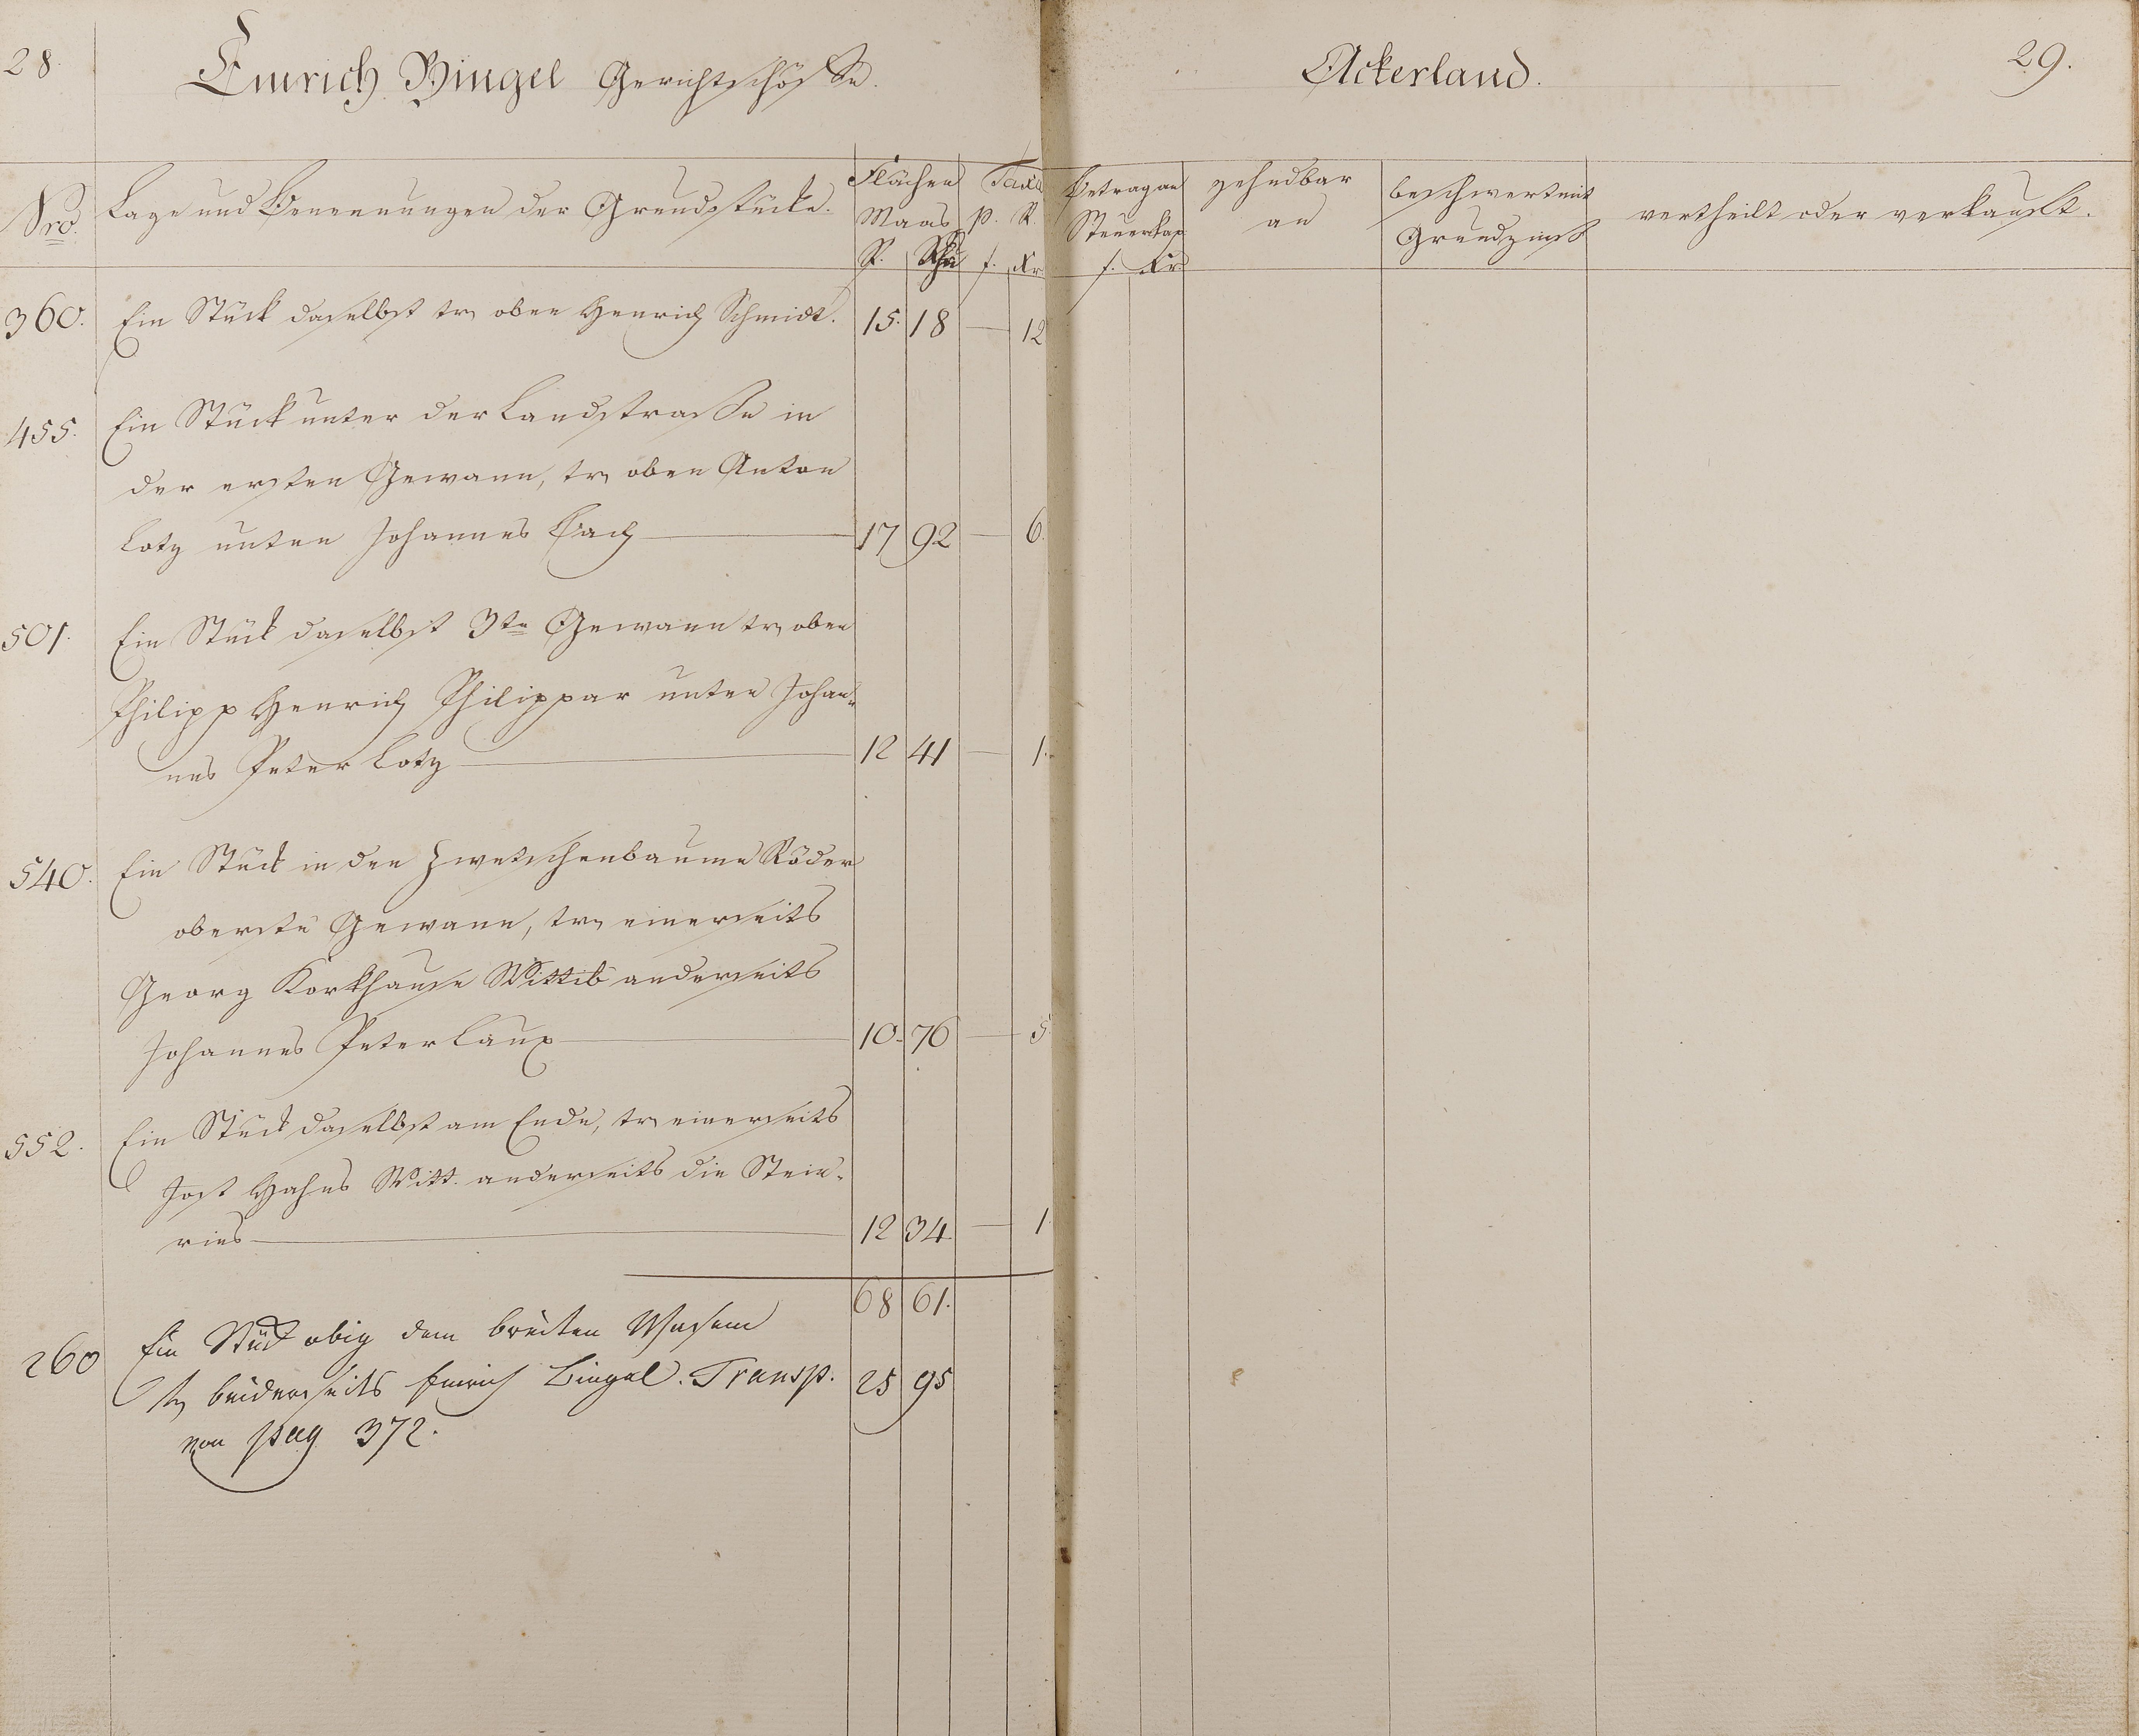 28.
Emrich Bingel Gerichtschöffe.
Ackerland.
29.
Nro.
Lage und Benennungen der Grundstücke.
Flächen
Maas
R. Schu
Taxa
p. R.
f. Kr.
Betrag an
Steuerkap.
f. Kr.
zehndbar
an
beschwert mit
Grundzinß
vertheilt oder verkauft.
360. Ein Stück daselbst tr, oben Henrich Schmidt. 15. 18 — 12
455. Ein Stück unter der Landstrasse in
der ersten Gewann, tr, oben Anton
Lotz unten Johannes Bach — 17 92 — 6.
501. Ein Stück daselbst 3te Gewann tr, oben
Philipp Henrich Philippar unten Johan-
nes Peter Lotz — 12 41 — 1.
540. Ein Stück in den Zwetschenbaume Röder
oberste Gewann, tr, einerseits
Georg Korkhause Wittib anderseits
Johannes Peter Laux — 10. 76 — 5
552. Ein Stück daselbst am Ende, tr, einerseits
Jost Hahns Witt. anderseits die Stein-
ries — 12 34. — 1
68 61.
260 Ein Stück obig dem breiten Wasem
tr, beiderseits Emrich Bingel. Transp. 25 95
von pag 372.